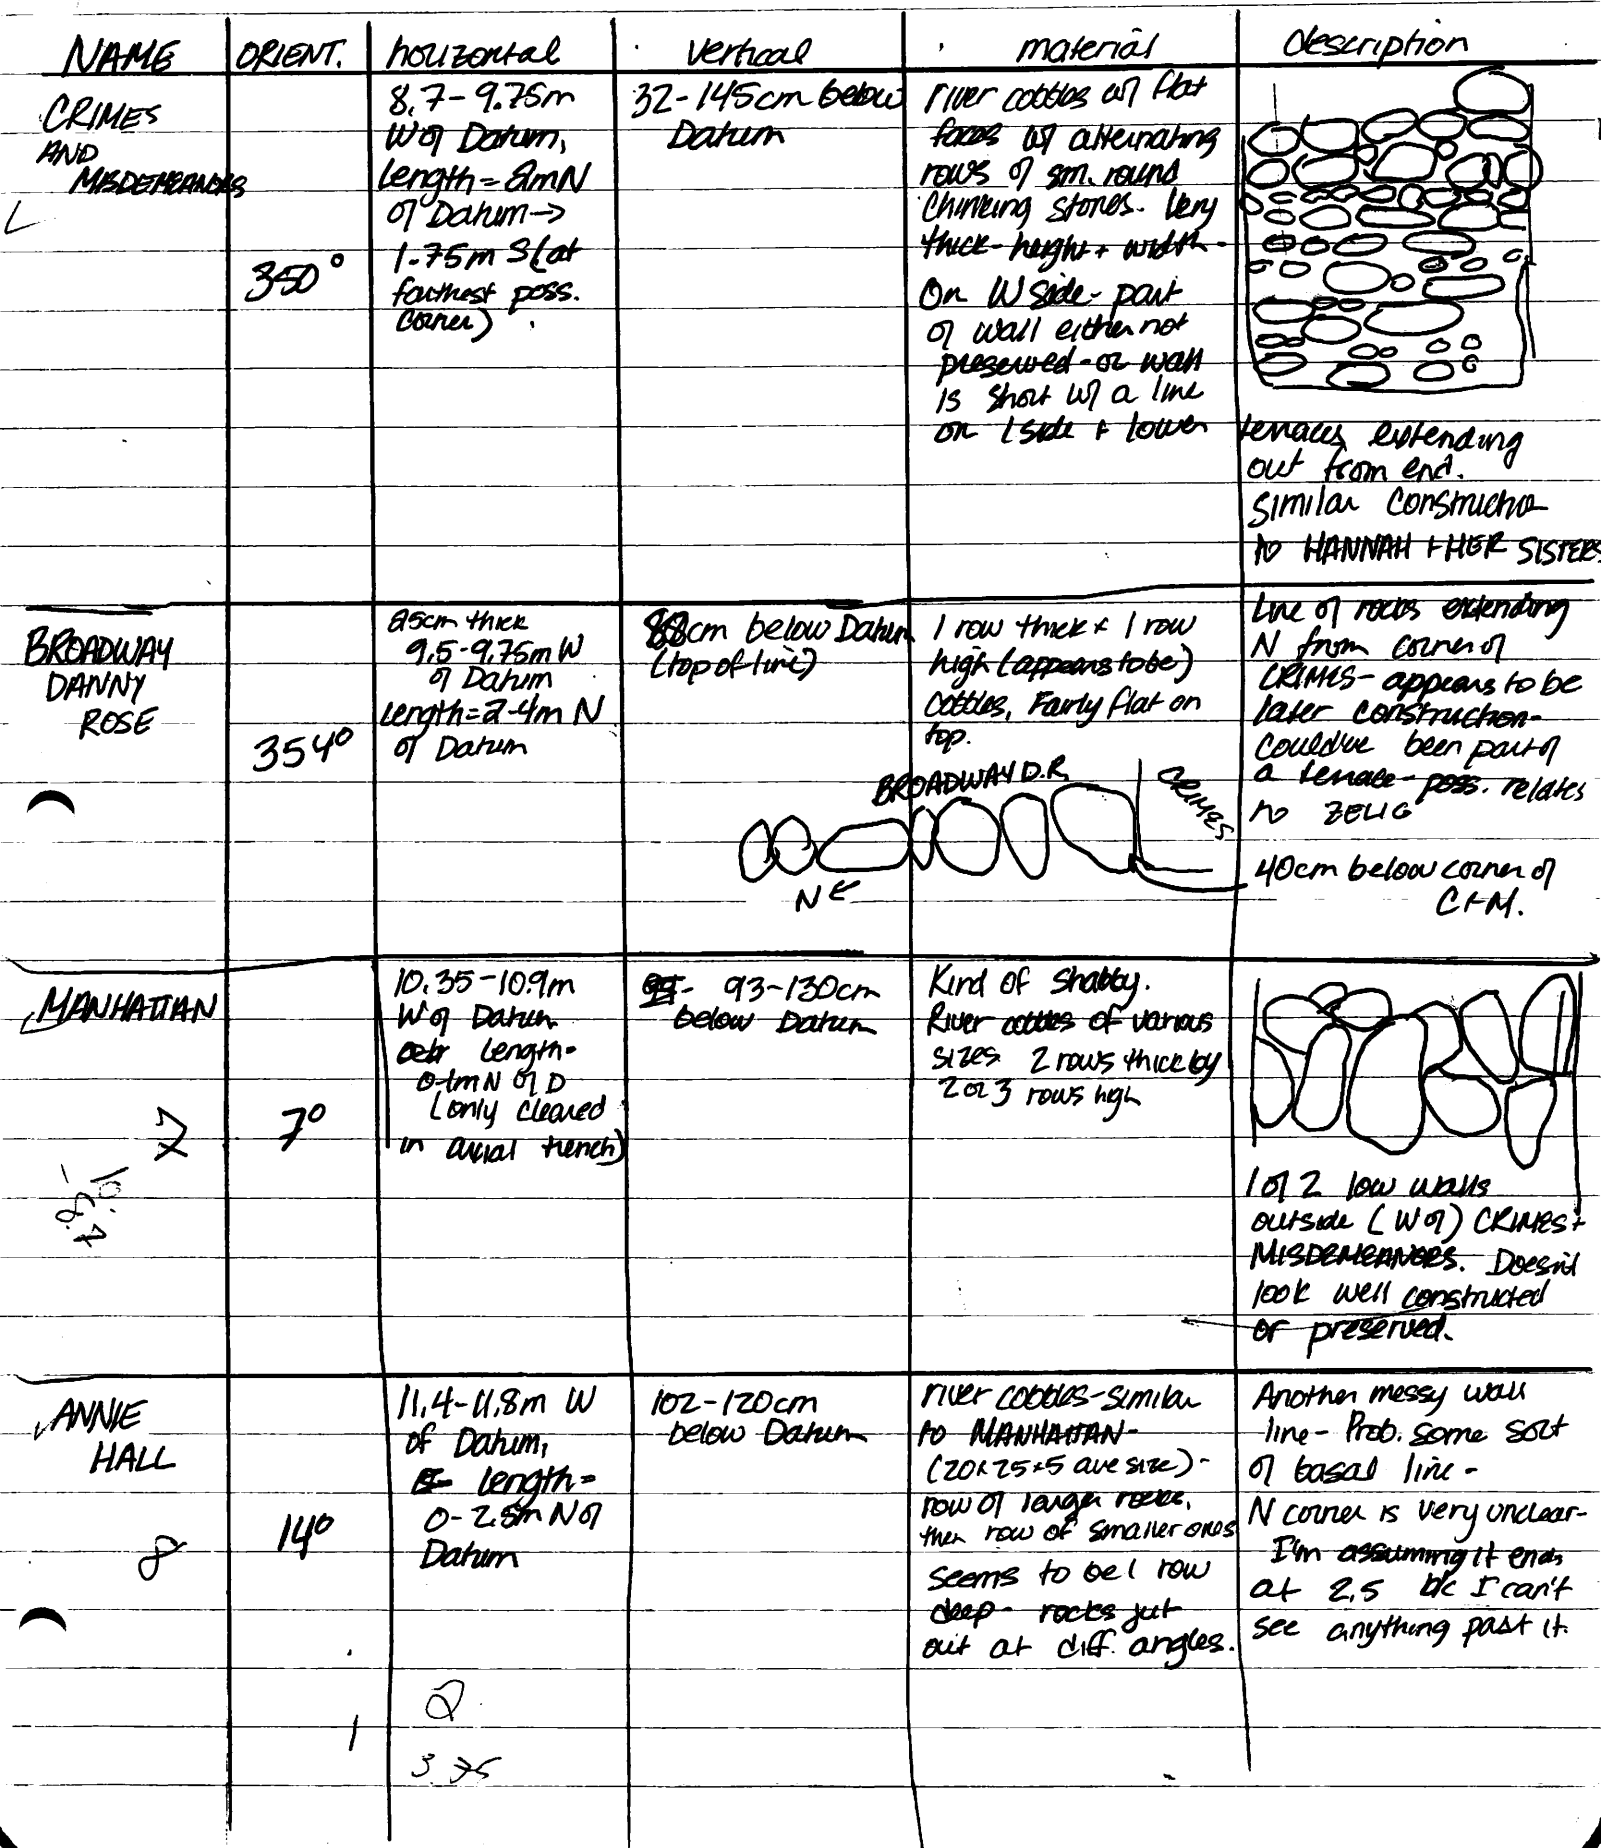 NAME ORIENT. horizontal vertical material description
CRIMES
AND
MISDEMEANORS
350°
8.7-9.75m
W of Datum,
Length = 2m N
of Datum →
1.75m S (at
farthest poss.
corner)
32-145cm below
Datum
river cobbles w/ flat
faces w/ alternating
rows of sm. round
chinking stones. Very
thick - height + width -
On W side - part
of wall either not
preserved - or wall
is short w/ a line
on 1 side + lower
terraces extending
out from end.
Similar construction
to HANNAH + HER SISTERS
BROADWAY
DANNY
ROSE
354°
25cm thick
9.5-9.75m W
of Datum
Length = 2-4m N
of Datum
88cm below Datum
(top of line)
1 row thick + 1 row
high (appears to be)
cobbles, Fairly flat on
top.
BROADWAY D.R.
CRIMES
N ←
Line of rocks extending
N from corner of
CRIMES - appears to be
later construction -
could've been part of
a terrace - poss. relates
to ZELIG
40cm below corner of
C+M.
MANHATTAN
7
10.7
- 8.7
7°
10.35-10.9m
W of Datum
Length -
0-1m N of D
(only cleared
in axial trench)
93-130cm
below Datum
Kind of shabby.
River cobbles of various
sizes 2 rows thick by
2 or 3 rows high
1 of 2 low walls
outside (W of) CRIMES +
MISDEMEANORS. Doesn't
look well constructed
or preserved.
ANNIE
HALL
8
14°
11.4-11.8m W
of Datum,
length =
0-2.5m N of
Datum
102-120cm
below Datum
river cobbles - similar
to MANHATTAN -
(20x25x5 ave size) -
row of larger rocks,
then row of smaller ones
seems to be 1 row
deep - rocks jut
out at diff. angles.
Another messy wall
line - Prob. some sort
of basal line -
N corner is very unclear -
I'm assuming it ends
at 2.5 b/c I can't
see anything past it.
2
1
3.75